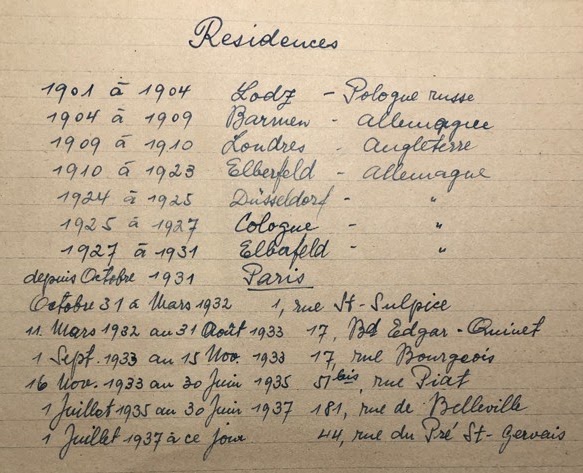 Residences
1901 à 1904 Lodz - Pologne russe
1904 à 1909 Barmen - Allemagne
1909 à 1910 Londres - Angleterre
1910 à 1923 Elberfeld - Allemagne
1924 à 1925 Düsseldorf - "
1925 à 1927 Cologne - "
1927 à 1931 Elberfeld - "
depuis Octobre 1931 Paris
Octobre 31 à Mars 1932 1, rue St-Sulpice
11 Mars 1932 au 31 Août 1933 17, Bd Edgar-Quinet
1 Sept. 1933 au 15 Nov 1933 17, rue Bourgeois
16 Nov. 1933 au 30 Juin 1935 51 bis, rue Piat
1 Juillet 1935 au 30 Juin 1937 181, rue de Belleville
1 Juillet 1937 à ce jour 44, rue du Pré St-Gervais